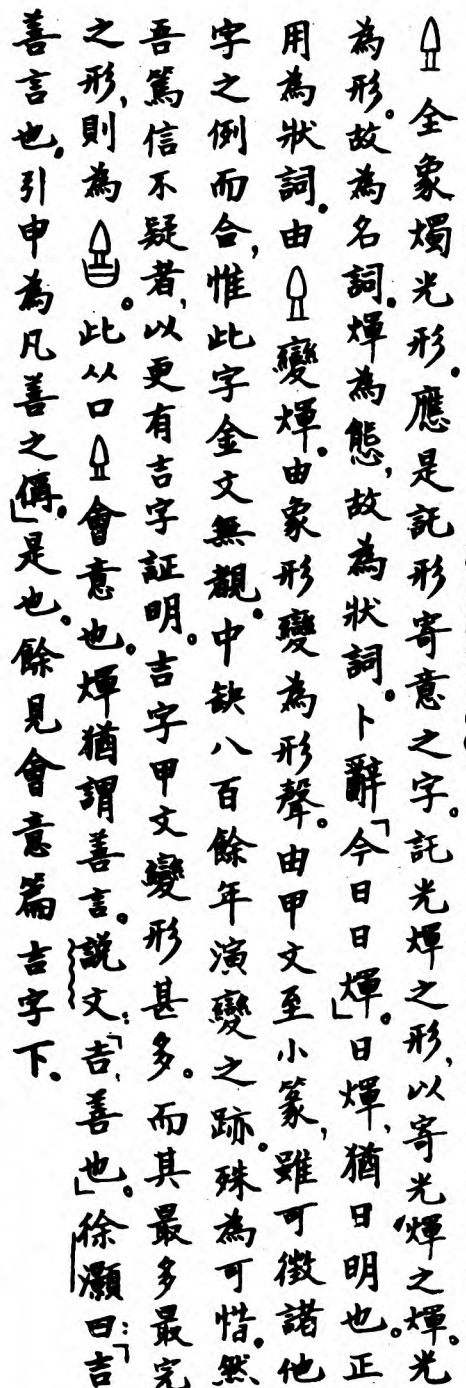 全象燭光形。應是託形寄意之字。託光煇之形，以寄光煇之煇。光
為形。故為名詞。煇為態，故為狀詞。卜辭「今日日煇」。日煇，猶日明也。正
用為狀詞。由變煇。由象形變為形聲。由甲文至小篆，雖可徵諸他
字之例而合，惟此字金文無覩。中缺八百餘年演變之跡。殊為可惜。然
吾篤信不疑者，以更有吉字証明。吉字甲文變形甚多。而其最多最完
之形，則為。此从口會意也。煇猶謂善言。說文：「吉，善也」。徐灝曰：「吉
善言也。引申為凡善之偁。」是也。餘見會意篇吉字下。